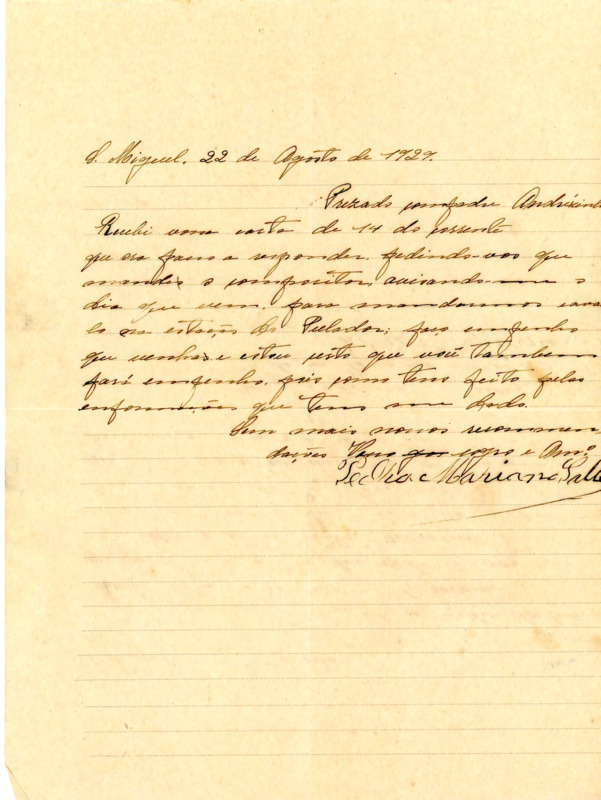 S. Miguel, 22 de Agosto de 1929.
Prezado compadre
Recebi vossa carta de 14 do corrente
que ora passo a responder, pedindo-vos que
mandes o compositor, avisando-me o
dia que vem, para mandarmos
lo na estação do Pulador; faço empenho
que venhas e estou certo que você tambem
fará empenho, pois como tens feito pelas
enformações que tens me dado.
Sem mais nossas recommen
dações e Amº
Pedro Mariano